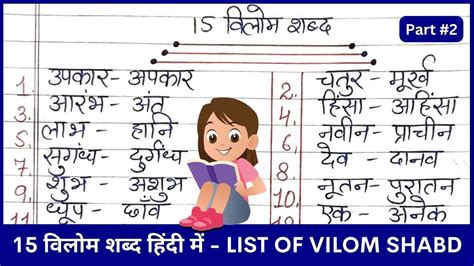 Part #2
15 विलोम शब्द
1. उपकार - अपकार
2. चतुर - मूर्ख
3. आरंभ - अंत
4. हिंसा - अहिंसा
5. लाभ - हानि
6. नवीन - प्राचीन
7. सुगंध - दुर्गंध
8. देव - दानव
9. शुभ - अशुभ
10. नूतन - पुरातन
11. धूप - छाँव
एक - अनेक
15 विलोम शब्द हिंदी में - LIST OF VILOM SHABD